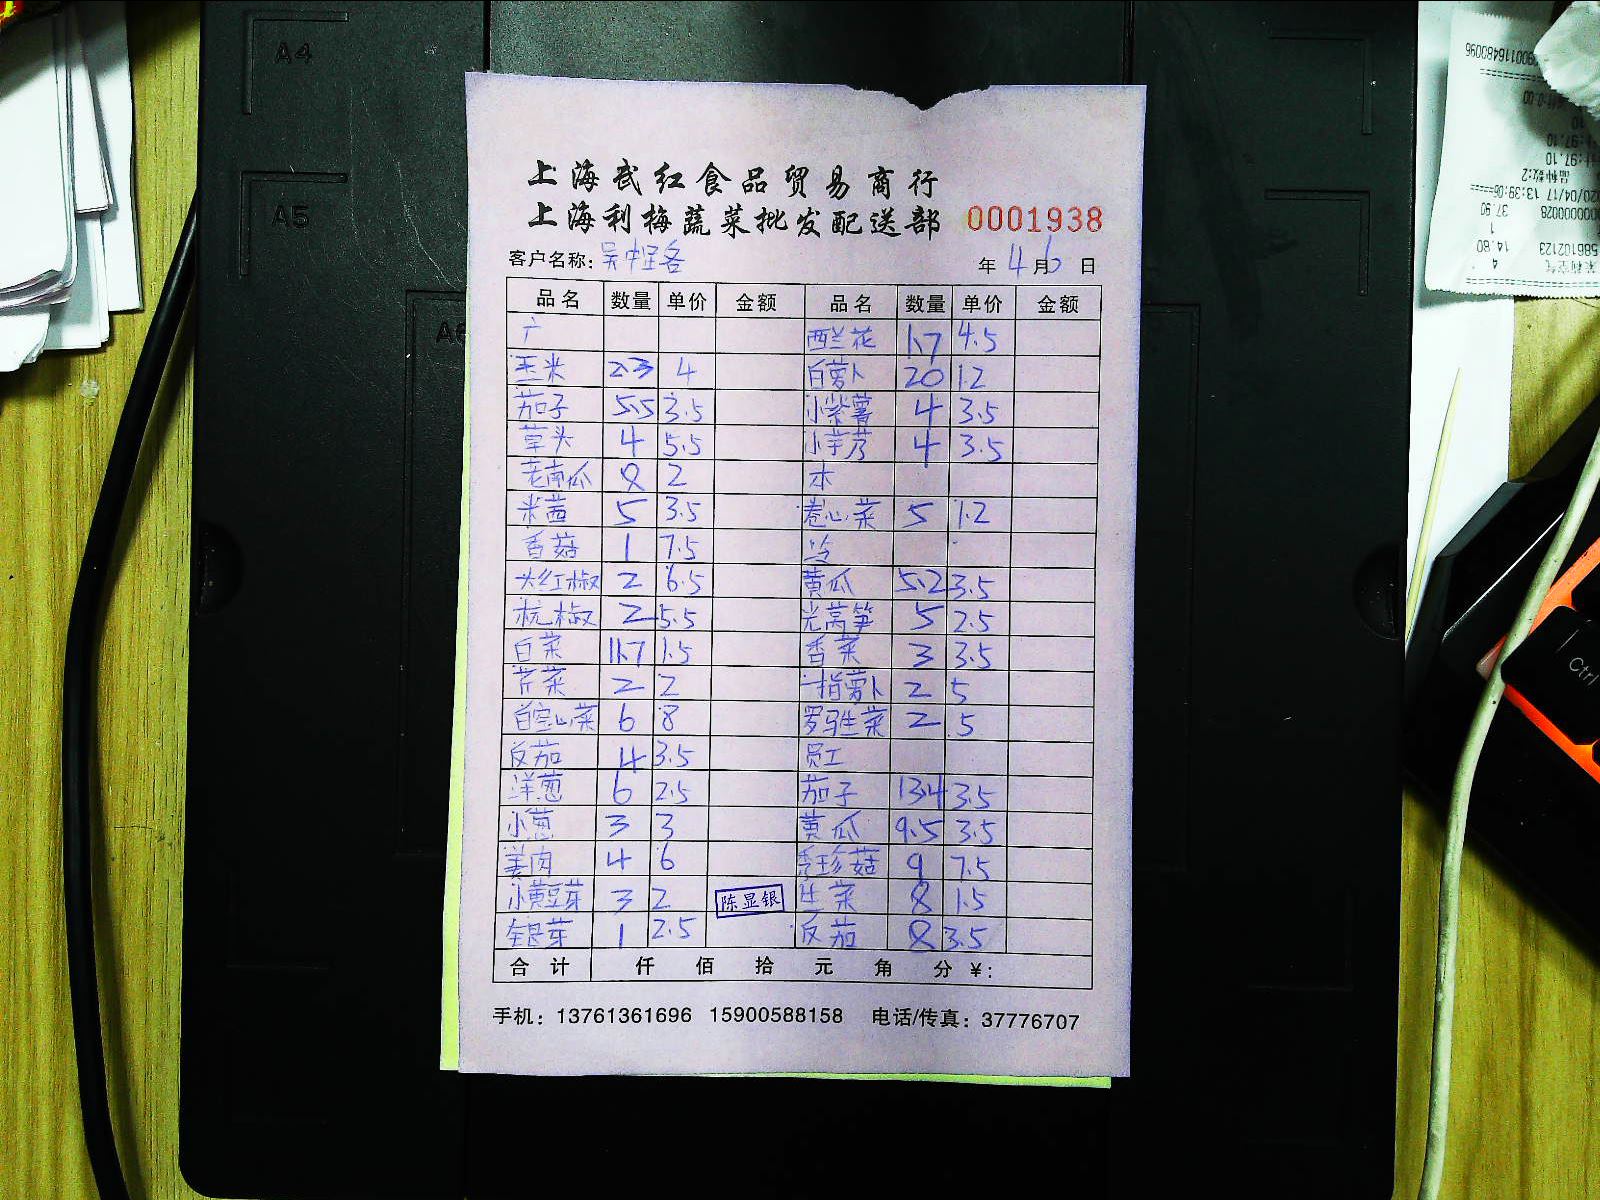 A4
A5
A6
上海武红食品贸易商行
上海利梅蔬菜批发配送部 0001938
客户名称: 年 4月6日
品名 数量 单价 金额 品名 数量 单价 金额
广 西兰花 1.7 4.5
玉米 2.3 4 白萝卜 20 1.2
茄子 5.5 3.5 小紫薯 4 3.5
草头 4 5.5 小芋艿 4 3.5
老南瓜 8 2 水
米茜 5 3.5 卷心菜 5 1.2
香菇 1 7.5 冷
大红椒 2 6.5 黄瓜 5.2 3.5
杭椒 2 5.5 光莴笋 5 2.5
白菜 11.7 1.5 香菜 3 3.5
芹菜 2 2 指萝卜 2 5
白空心菜 6 8 罗马生菜 2 5
反茄 4 3.5 员工
洋葱 6 2.5 茄子 13.4 3.5
小葱 3 3 黄瓜 9.5 3.5
姜肉 4 6 秀珍菇 9 7.5
小黄豆芽 3 2 陈显银 生菜 8 1.5
银芽 1 2.5 反茄 8 3.5
合计 仟 佰 拾 元 角 分 ¥:
手机: 13761361696 15900588158 电话/传真: 37776707
Ctrl